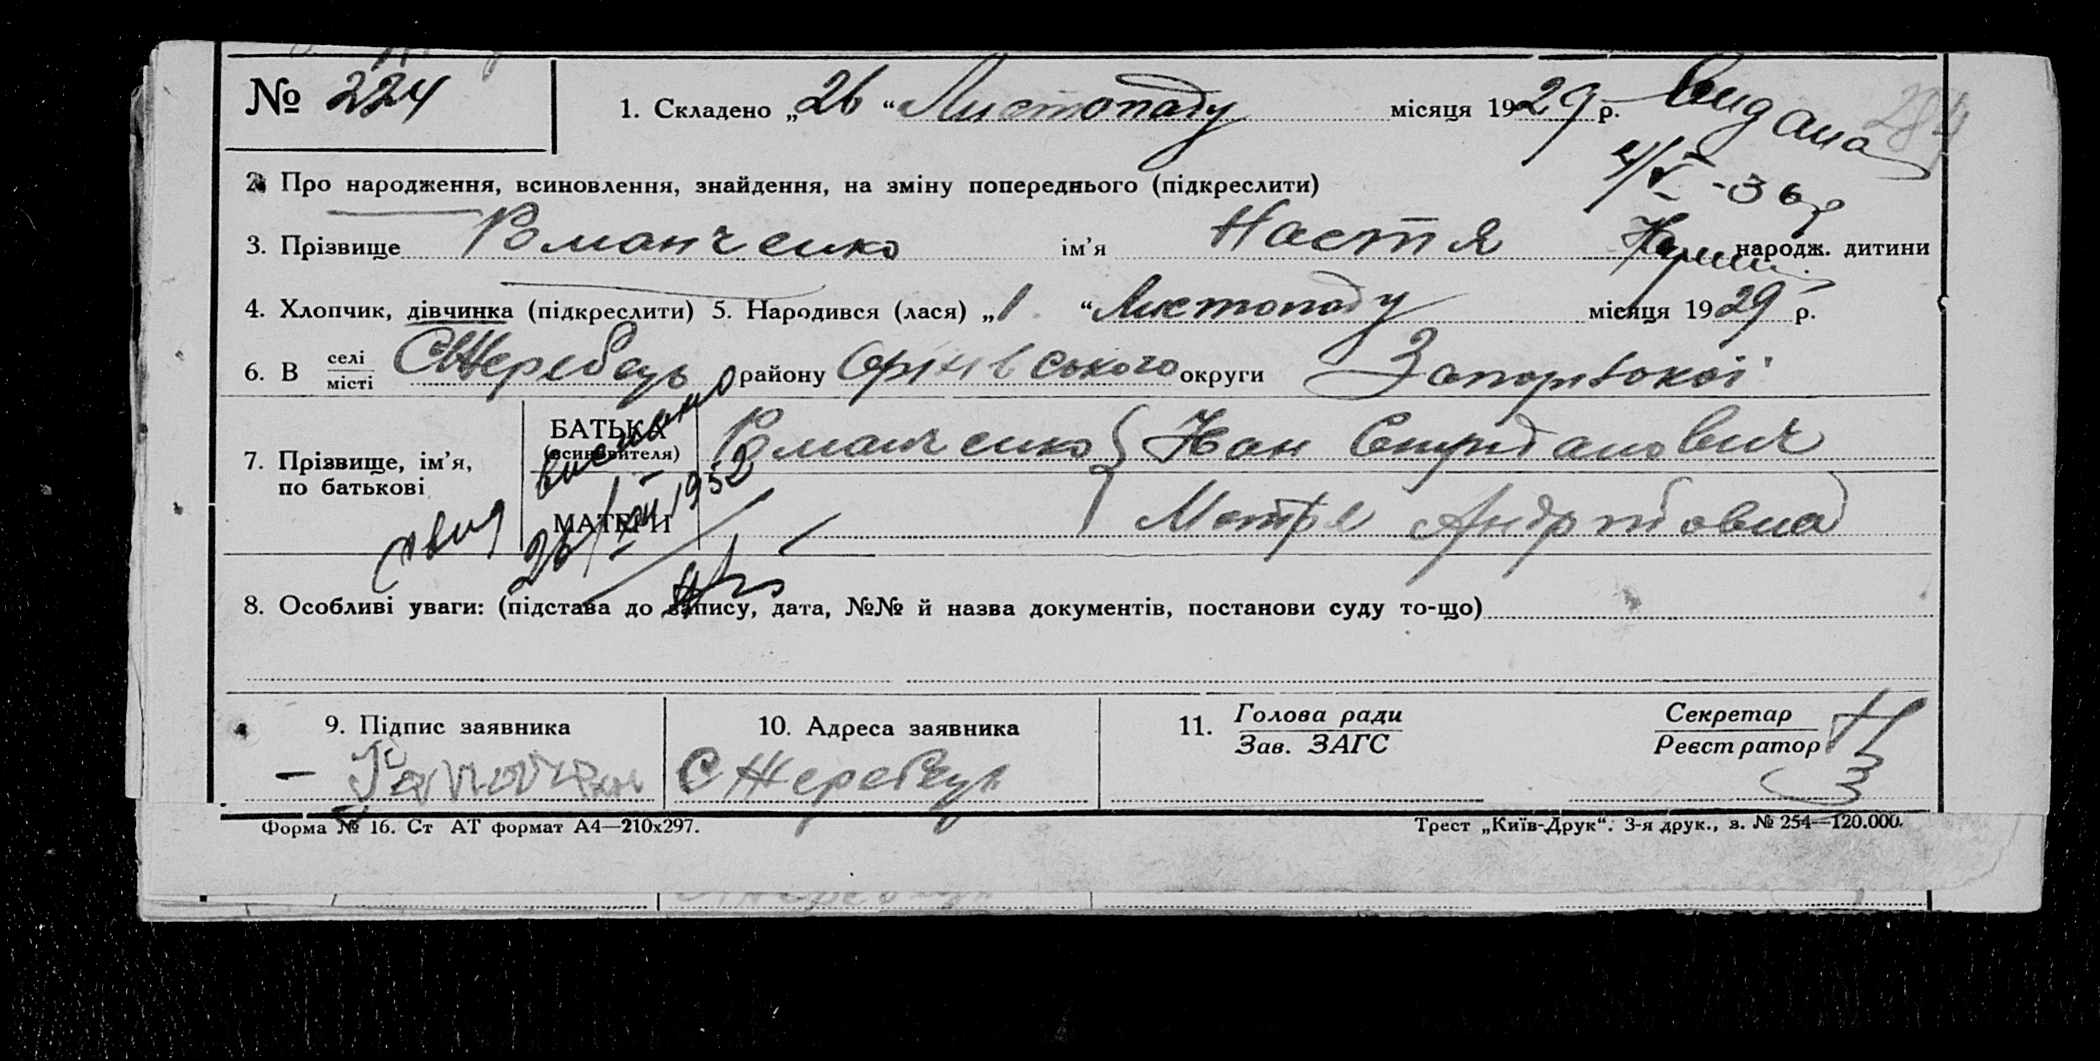 № 224
1. Складено „26“ Листопаду місяця 1929 р. Видана
284
4/V-36 р
2. Про народження, всиновлення, знайдення, на зміну попереднього (підкреслити)
3. Прізвище Романченко ім’я Настя народж. дитини
4. Хлопчик, дівчинка (підкреслити) 5. Народився (лася) „1“ Листопаду місяця 1929 р.
6. В селі
місті С Жеребець району Оріхівського округи Запорізької
7. Прізвище, ім’я,
по батькові
БАТЬКА
(всиновителя)
Романченко Іван Спиридонович
МАТЕРИ
Мотря Андріївна
свид выслано
26/XII 1952
8. Особливі уваги: (підстава до запису, дата, №№ й назва документів, постанови суду то-що)
9. Підпис заявника
10. Адреса заявника
С Жеребець
11. Голова ради
Зав. ЗАГС
Секретар
Реєстратор
Форма № 16. Ст АТ формат А4—210х297.
Трест „Київ-Друк“. 3-я друк., з. № 254—120.000.